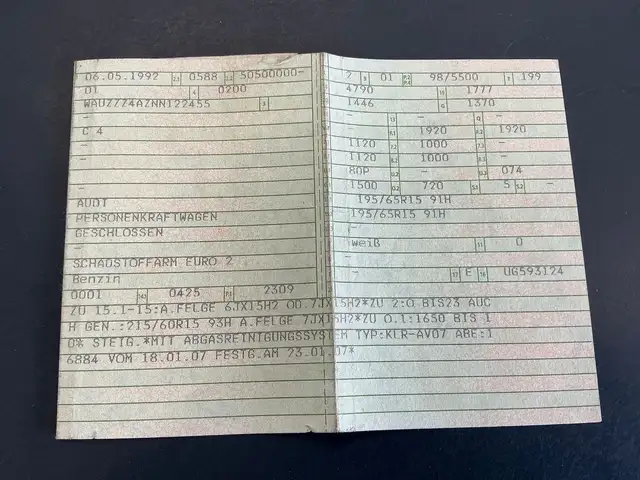 06.05.1992 2.1 0588 2.2 50500000-
01 4 0200
WAUZZZ4AZNN122455 3
-
C 4
-
-
AUDI
PERSONENKRAFTWAGEN
GESCHLOSSEN
-
SCHADSTOFFARM EURO 2
Benzin
0001 14.1 0425 P.1 2309
2 9 01 P.2 P.4 98/5500 T 199
4790 18 1777
1446 G 1370
- 13 - Q -
- 1920 F.2 1920
1120 7.2 1000 7.3 -
1120 8.2 1000 8.3 -
80P U.2 - 074
1500 O.2 720 S.1 5 S.2 -
195/65R15 91H
195/65R15 91H
-
weiß 11 0
-
- 17 E 16 UG593124
ZU 15.1-15:A.FELGE 6JX15H2 OD 7JX15H2*ZU 2:O BIS23 AUC
H GEN.:215/60R15 93H A.FELGE 7JX15H2*ZU O.1:1650 BIS 1
0% STEIG.*MIT ABGASREINIGUNGSSYSTEM TYP:KLR-AV07 ABE:1
6884 VOM 18.01.07 FESTG.AM 23.01.07*